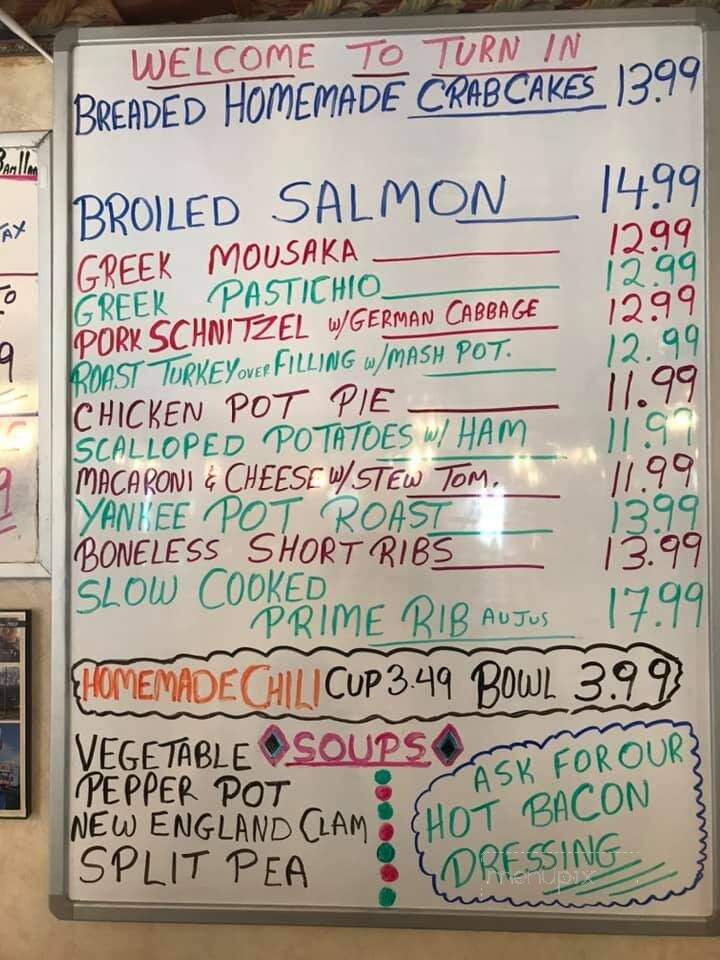 WELCOME TO TURN IN
BREADED HOMEMADE CRABCAKES 13.99
BROILED SALMON 14.99
GREEK MOUSAKA 12.99
GREEK PASTICHIO 12.99
PORK SCHNITZEL W/GERMAN CABBAGE 12.99
ROAST TURKEY OVER FILLING W/MASH POT. 12.99
CHICKEN POT PIE 11.99
SCALLOPED POTATOES W/ HAM 11.99
MACARONI & CHEESE W/ STEW TOM. 11.99
YANKEE POT ROAST 13.99
BONELESS SHORT RIBS 13.99
SLOW COOKED
PRIME RIB AU JUS 17.99
HOMEMADE CHILI CUP 3.49 BOWL 3.99
SOUPS
VEGETABLE
PEPPER POT
NEW ENGLAND CLAM
SPLIT PEA
ASK FOR OUR
HOT BACON
DRESSING
menupix